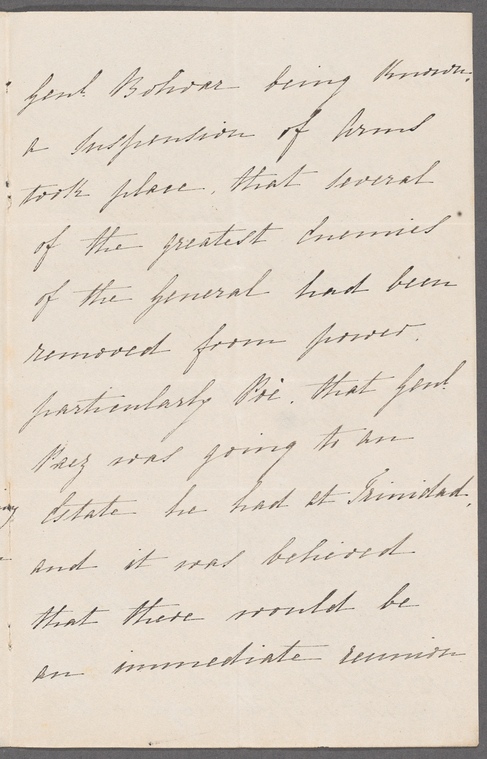 Genl. Bolivar being known,
a Suspension of Arms
took place, that several
of the greatest Enemies
of the General had been
removed from power,
particularly Poè, that Genl.
Paez was going to an
Estate he had at Trinidad,
and it was believed
that there would be
an immediate reunion